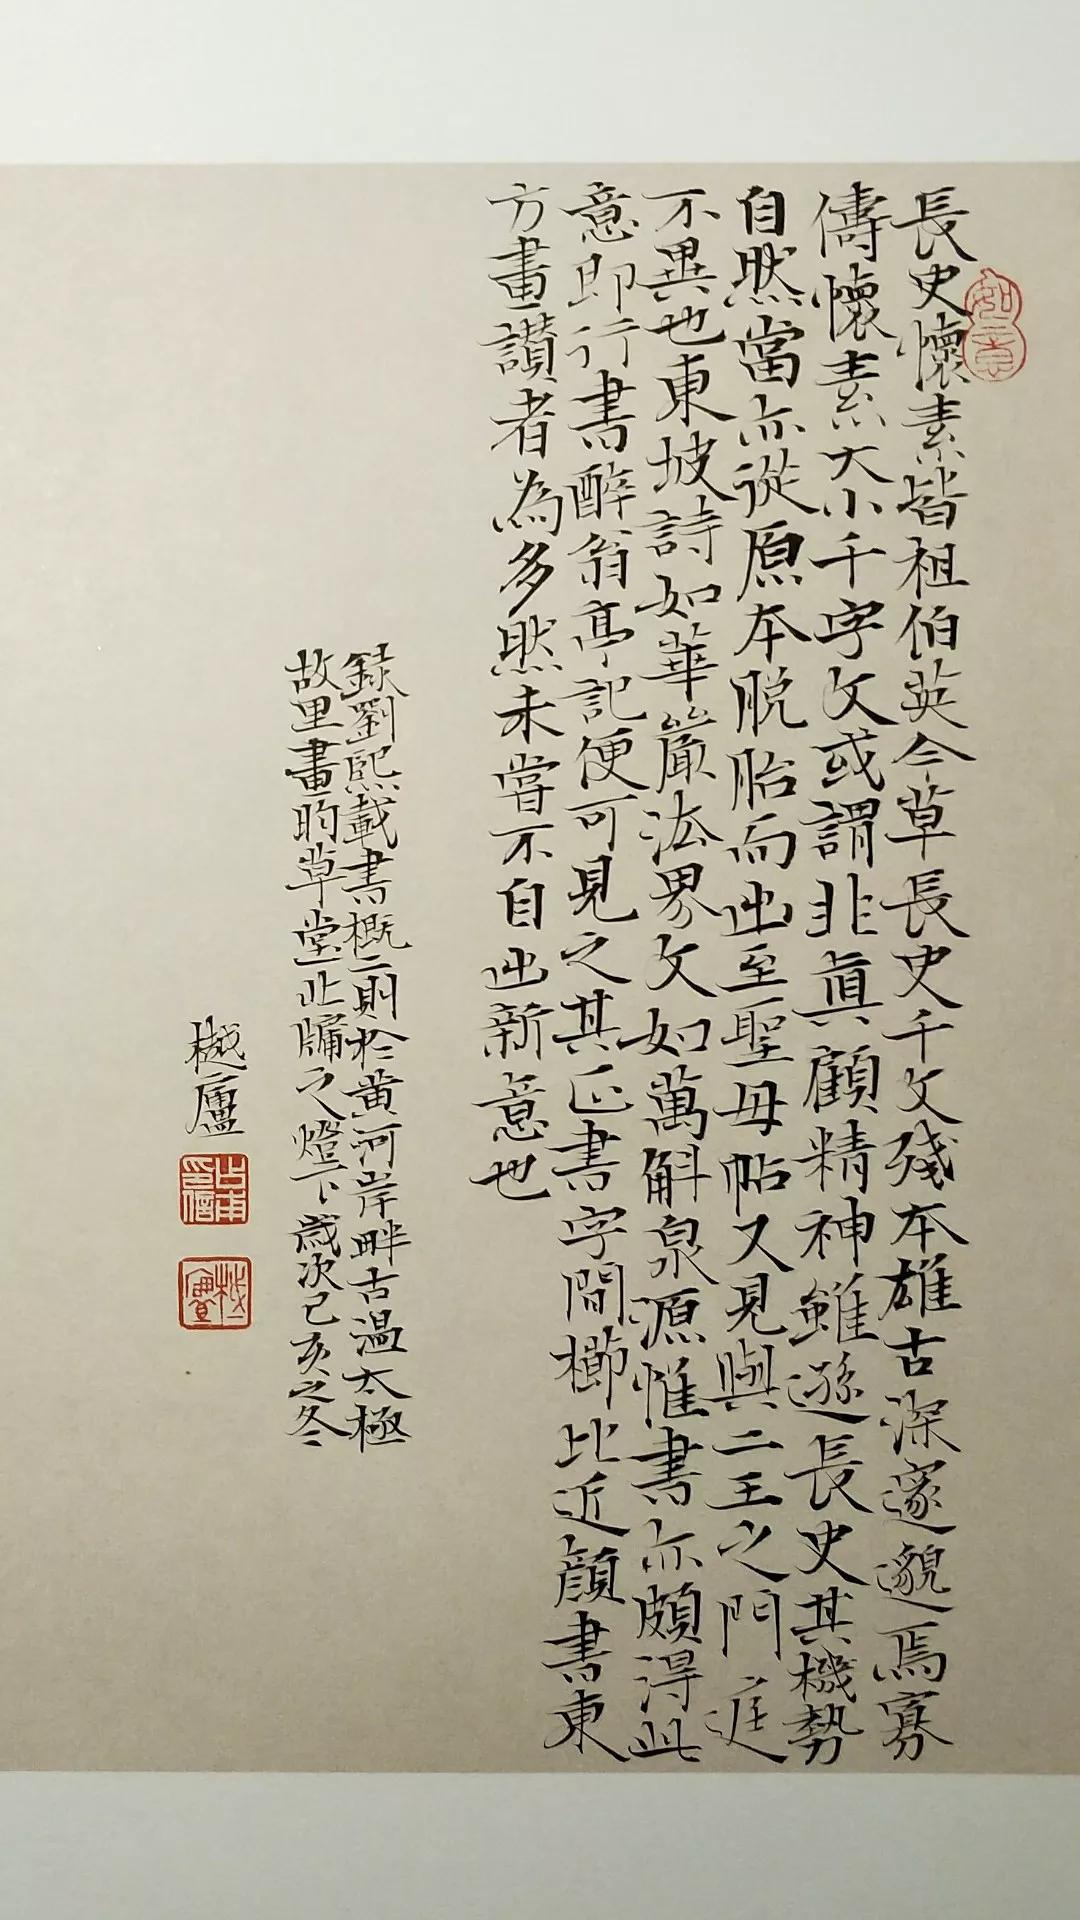 長史懷素皆祖伯英今草長史千文殘本雄古深邃邈焉寡
儔懷素大小千字文或謂非真顧精神雖遜長史其機勢
自然當亦從原本脫胎而出至聖母帖又見與二王之門庭
不異也東坡詩如華嚴法界文如萬斛泉源惟書亦頗得此
意即行書醉翁亭記便可見之其正書字間櫛比近顏書東
方畫讚者為多然未嘗不自出新意也
錄劉熙載書概二則於黄河岸畔古溫太極
故里畫昀草堂北牖之燈下歲次己亥之冬
樾廬
如意